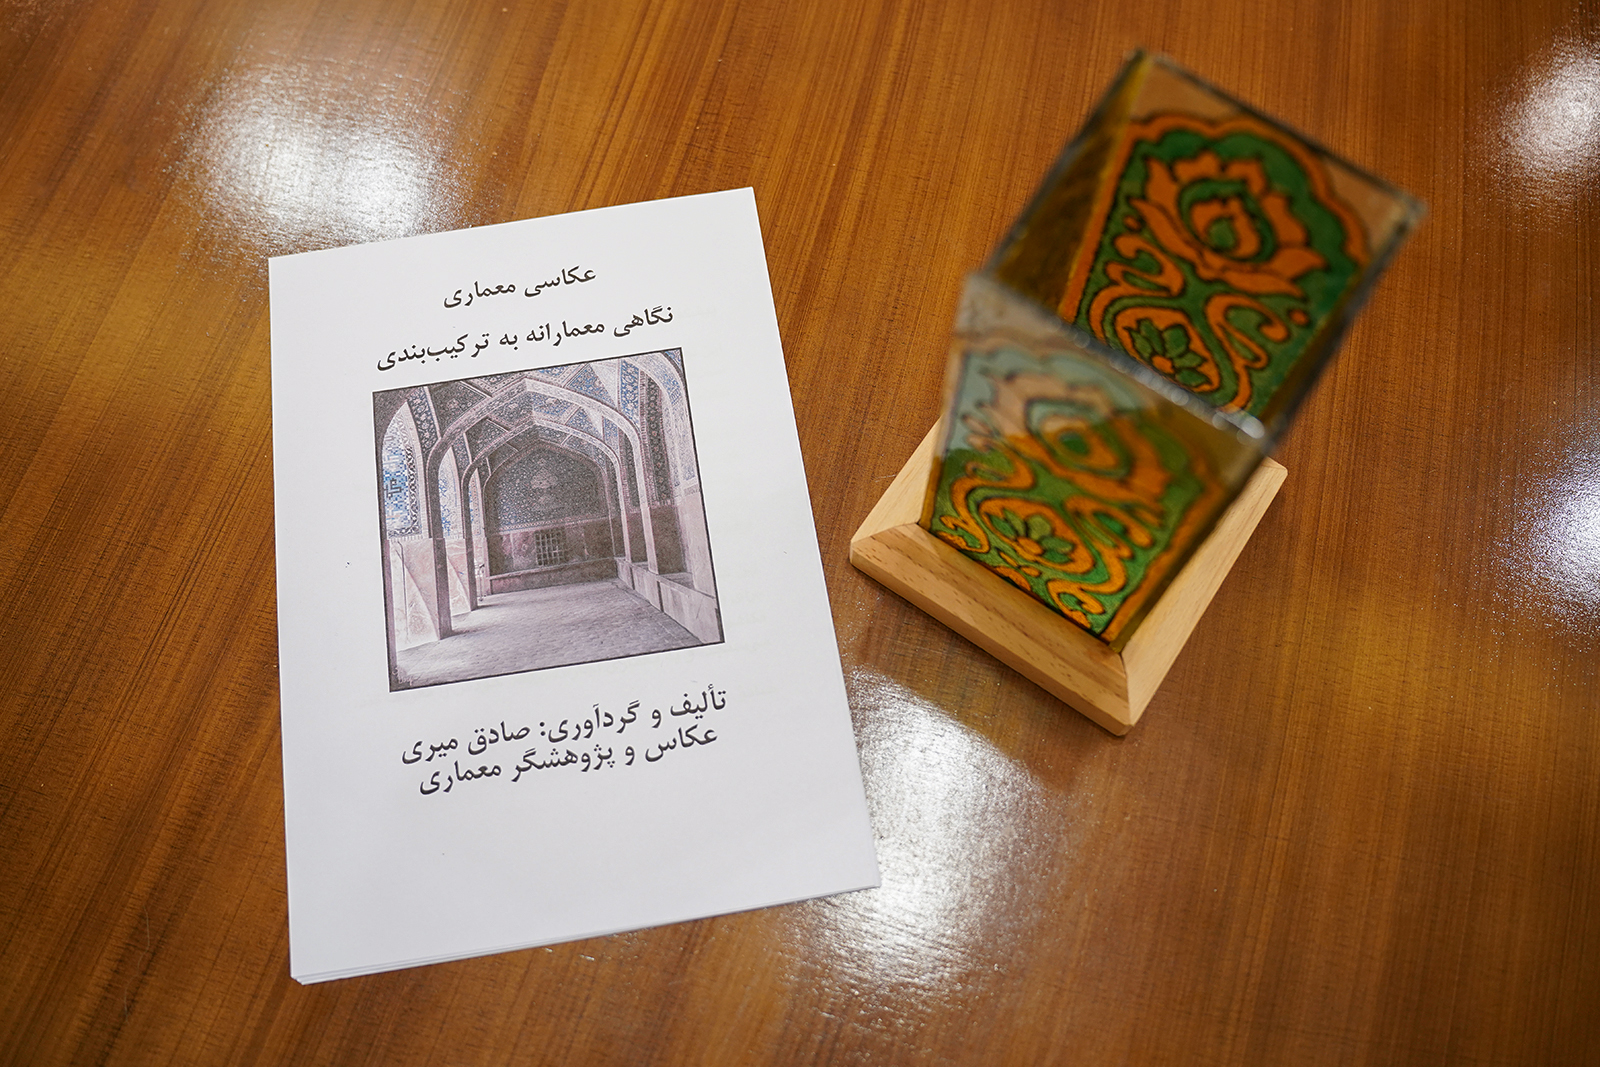 عکاسی معماری
نگاهی معمارانه به ترکیب‌بندی
تألیف و گردآوری: صادق میری
عکاس و پژوهشگر معماری